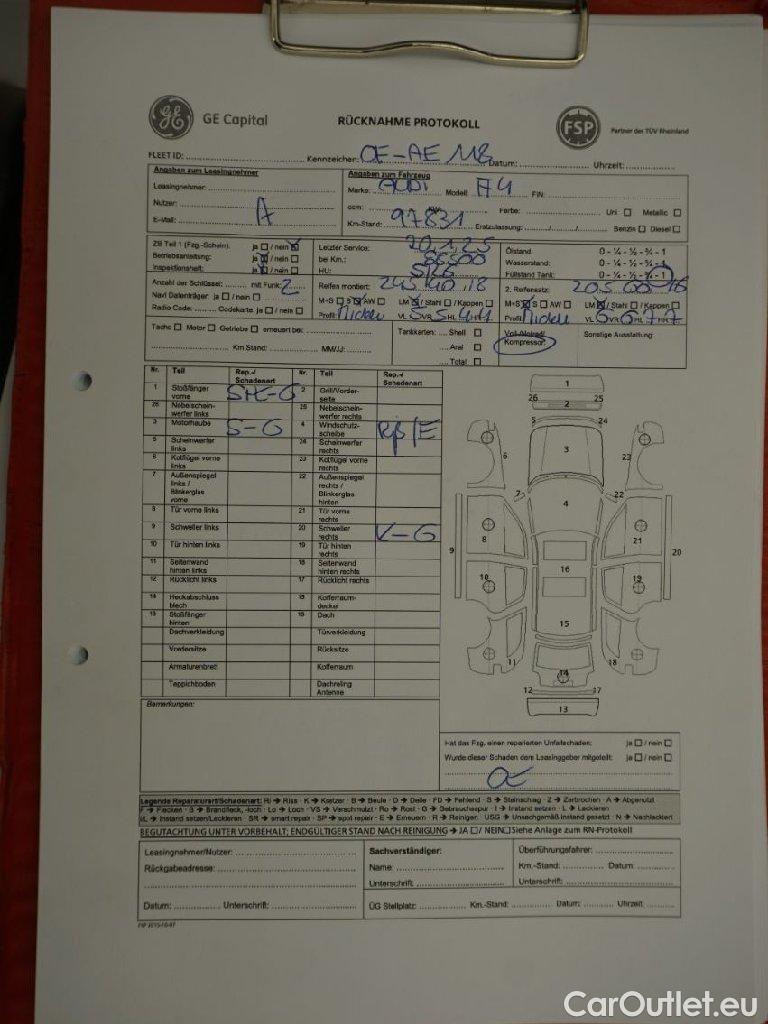 GE Capital
RÜCKNAHME PROTOKOLL
FSP
Partner der TÜV Rheinland
FLEET ID: Kennzeichen: OE-AE 118 Datum: Uhrzeit:
Angaben zum Leasingnehmer
Leasingnehmer:
Nutzer:
E-Mail:
A
Angaben zum Fahrzeug
Marke: AUDI Modell: A4 FIN:
ccm: KW: Farbe: Uni ☐ Metallic ☐
Km-Stand: 97831 Erstzulassung: Benzin ☐ Diesel ☐
ZB Teil 1 (Fzg.-Schein): ja ☐ / nein ☒
Betriebsanleitung: ja ☒ / nein ☐
Inspektionsheft: ja ☒ / nein ☐
Letzter Service: 20.1.25
bei Km.:
HU:
Ölstand 0 - ¼ - ½ - ¾ - 1
Wasserstand: 0 - ¼ - ½ - ¾ - 1
Füllstand Tank: 0 - ¼ - ½ - ¾ - 1
Anzahl der Schlüssel: mit Funk: 2
Navi Datenträger: ja ☐ / nein ☐
Radio Code: Codekarte ja ☐ / nein ☐
Reifen montiert: 245 40 18
M+S ☐ S ☒ AW ☐ LM ☒ / Stahl ☐ / Kappen ☐
Profil: VL 5 VR 5 HL 4 HR 4
2. Reifensatz: 205 60 16
M+S ☒ S ☐ AW ☐ LM ☒ / Stahl ☐ / Kappen ☐
Profil: VL 6 VR 6 HL 7 HR 7
Tacho ☐ Motor ☐ Getriebe ☐ erneuert bei:
Km Stand: MM/JJ:
Tankkarten: Shell ☐
Aral ☐
Total ☐
Kompressor:
Sonstige Ausstattung
Nr. Teil Rep.-/ Schadenart Nr. Teil Rep.-/ Schadenart
1 Stoßfänger vorne 2 Grill/Vorderseite
26 Nebelscheinwerfer links 25 Nebelscheinwerfer rechts
3 Motorhaube S-G 4 Windschutzscheibe
5 Scheinwerfer links 24 Scheinwerfer rechts
6 Kotflügel vorne links 23 Kotflügel vorne rechts
7 Außenspiegel links / Blinkerglas vorne 22 Außenspiegel rechts / Blinkerglas hinten
8 Tür vorne links 21 Tür vorne rechts
9 Schweller links 20 Schweller rechts K-G
10 Tür hinten links 19 Tür hinten rechts
11 Seitenwand hinten links 18 Seitenwand hinten rechts
12 Rücklicht links 17 Rücklicht rechts
14 Heckabschlussblech 15 Kofferraumdeckel
13 Stoßfänger hinten 16 Dach
Dachverkleidung Türverkleidung
Vordersitze Rücksitze
Armaturenbrett Kofferraum
Teppichboden Dachreling Antenne
1
26 25
2
5 24
3
6 23
7 22
4
8 21
9 20
16
10 19
15
11 18
14
12 17
13
Bemerkungen:
Hat das Fzg. einen reparierten Unfallschaden: ja ☐ / nein ☐
Wurde dieser Schaden dem Leasinggeber mitgeteilt: ja ☐ / nein ☐
OE
Legende Reparaturart/Schadenart: RI → Riss · K → Kratzer · B → Beule · D → Delle · FD → Fehlend · S → Steinschlag · Z → Zerbrochen · A → Abgenutzt
F → Flecken · B → Brandfleck, -loch · Lo → Loch · VS → Verschmutzt · Ro → Rost · G → Gebrauchsspur · I → Instand setzen · L → Lackieren
IL → Instand setzen/Lackieren · SR → smart repair · SP → spot repair · E → Erneuern · R → Reinigen · USG → Unsachgemäß instand gesetzt · N → Nachlackiert
BEGUTACHTUNG UNTER VORBEHALT; ENDGÜLTIGER STAND NACH REINIGUNG → JA ☐ / NEIN ☐ Siehe Anlage zum RN-Protokoll
Leasingnehmer/Nutzer:
Rückgabeadresse:
Datum: Unterschrift:
Sachverständiger:
Name:
Unterschrift:
Überführungsfahrer:
Km.-Stand: Datum:
Unterschrift:
ÜG Stellplatz: Km.-Stand: Datum: Uhrzeit
CarOutlet.eu